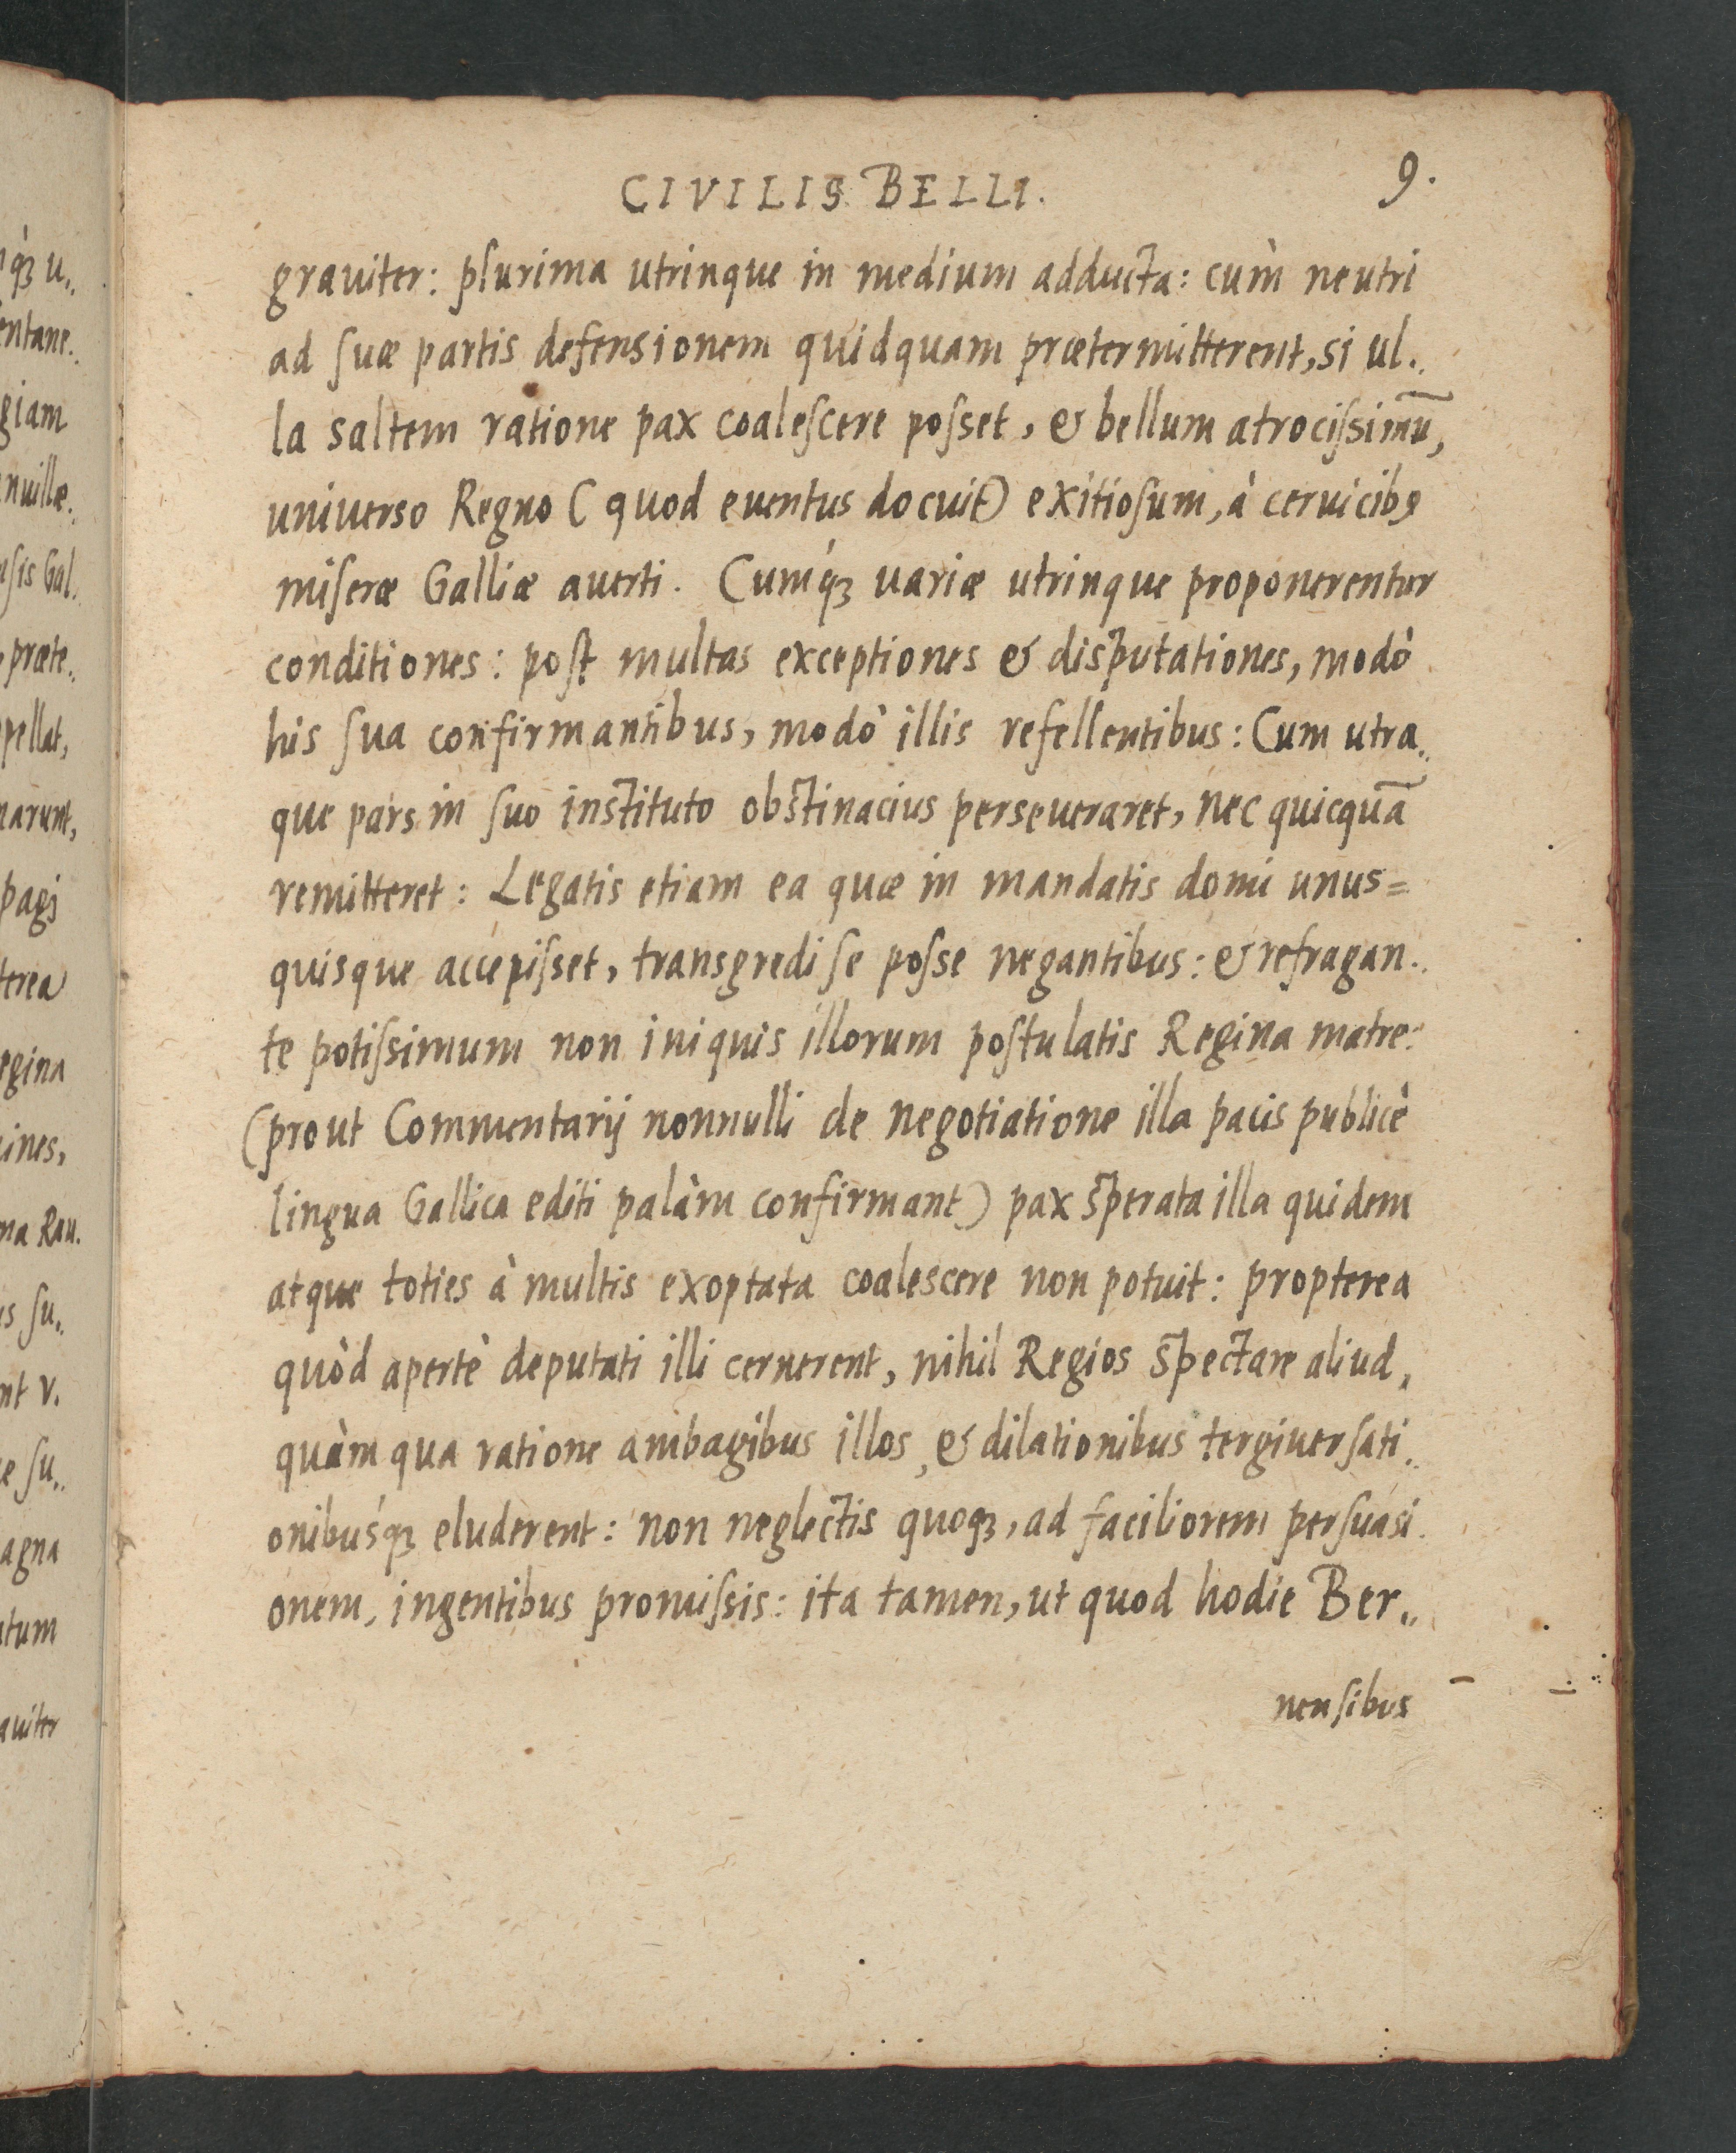 CIVILIS BELLI. 9.
grauiter: plurima utrinque in medium adducta: cùm neutri
ad suæ partis defensionem quidquam prætermitterent, si ul..
la saltem ratione pax coalescere posset, & bellum atrocissimū,
uniuerso Regno (quod euentus docuit) exitiosum, à ceruicibꝰ
miseræ Galliæ auerti. Cumq́ꝫ uariæ utrinque proponerentur
conditiones: post multas exceptiones & disputationes, modò
his sua confirmantibus, modò illis refellentibus: Cum utra..
que pars in suo instituto obstinacius perseueraret, nec quicquā
remitteret: Legatis etiam ea quæ in mandatis domi unus=
quisque accepisset, transgredi se posse negantibus: & refragan..
te potissimum non iniquis illorum postulatis Regina matre:
(prout Commentarij nonnulli de negotiatione illa pacis publicè
lingua Gallica editi palàm confirmant) pax sperata illa quidem
atque toties à multis exoptata coalescere non potuit: propterea
quòd apertè deputati illi cernerent, nihil Regios spectare aliud,
quàm qua ratione ambagibus illos, & dilationibus tergiuersati..
onibusq́ꝫ eluderent: non neglectis quoqꝫ, ad faciliorem persuasi.
onem, ingentibus promissis: ita tamen, ut quod hodie Ber..
nensibus
qꝫ́ u..
entane..
giam
nuillæ..
sis Gal.
præte..
pellat,
narunt,
pagi
terea
egina
ines,
na Rau.
s su..
nt v.
e su..
agna
tum
auiter